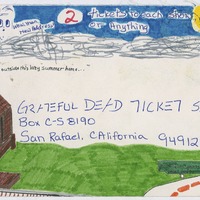 2 tickets to each show
or anything
New Address
outside this way summer home..
GRATEFUL DEAD TICKET S
Box C-S 8190
San Rafael, California
94912